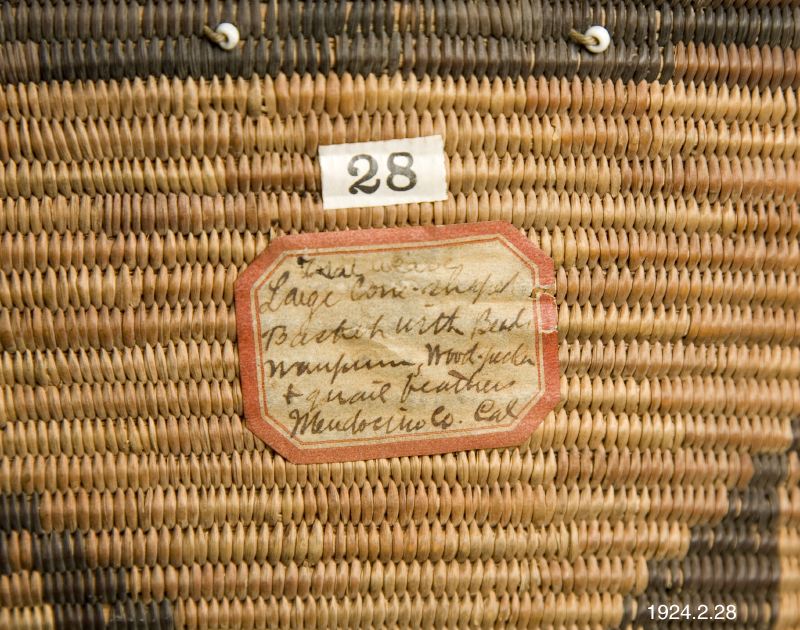 28
weave
Large Cone-shaped
Basket with Beads
Wampum, Wood-pecker
& quail feathers
Mendocino Co. Cal
1924.2.28